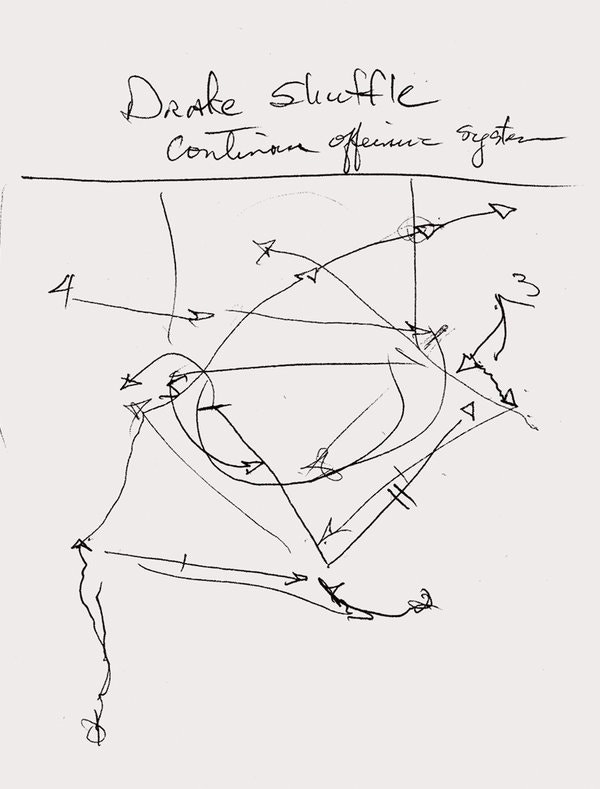 Drake Shuffle
Continous offensive system
4
3
2